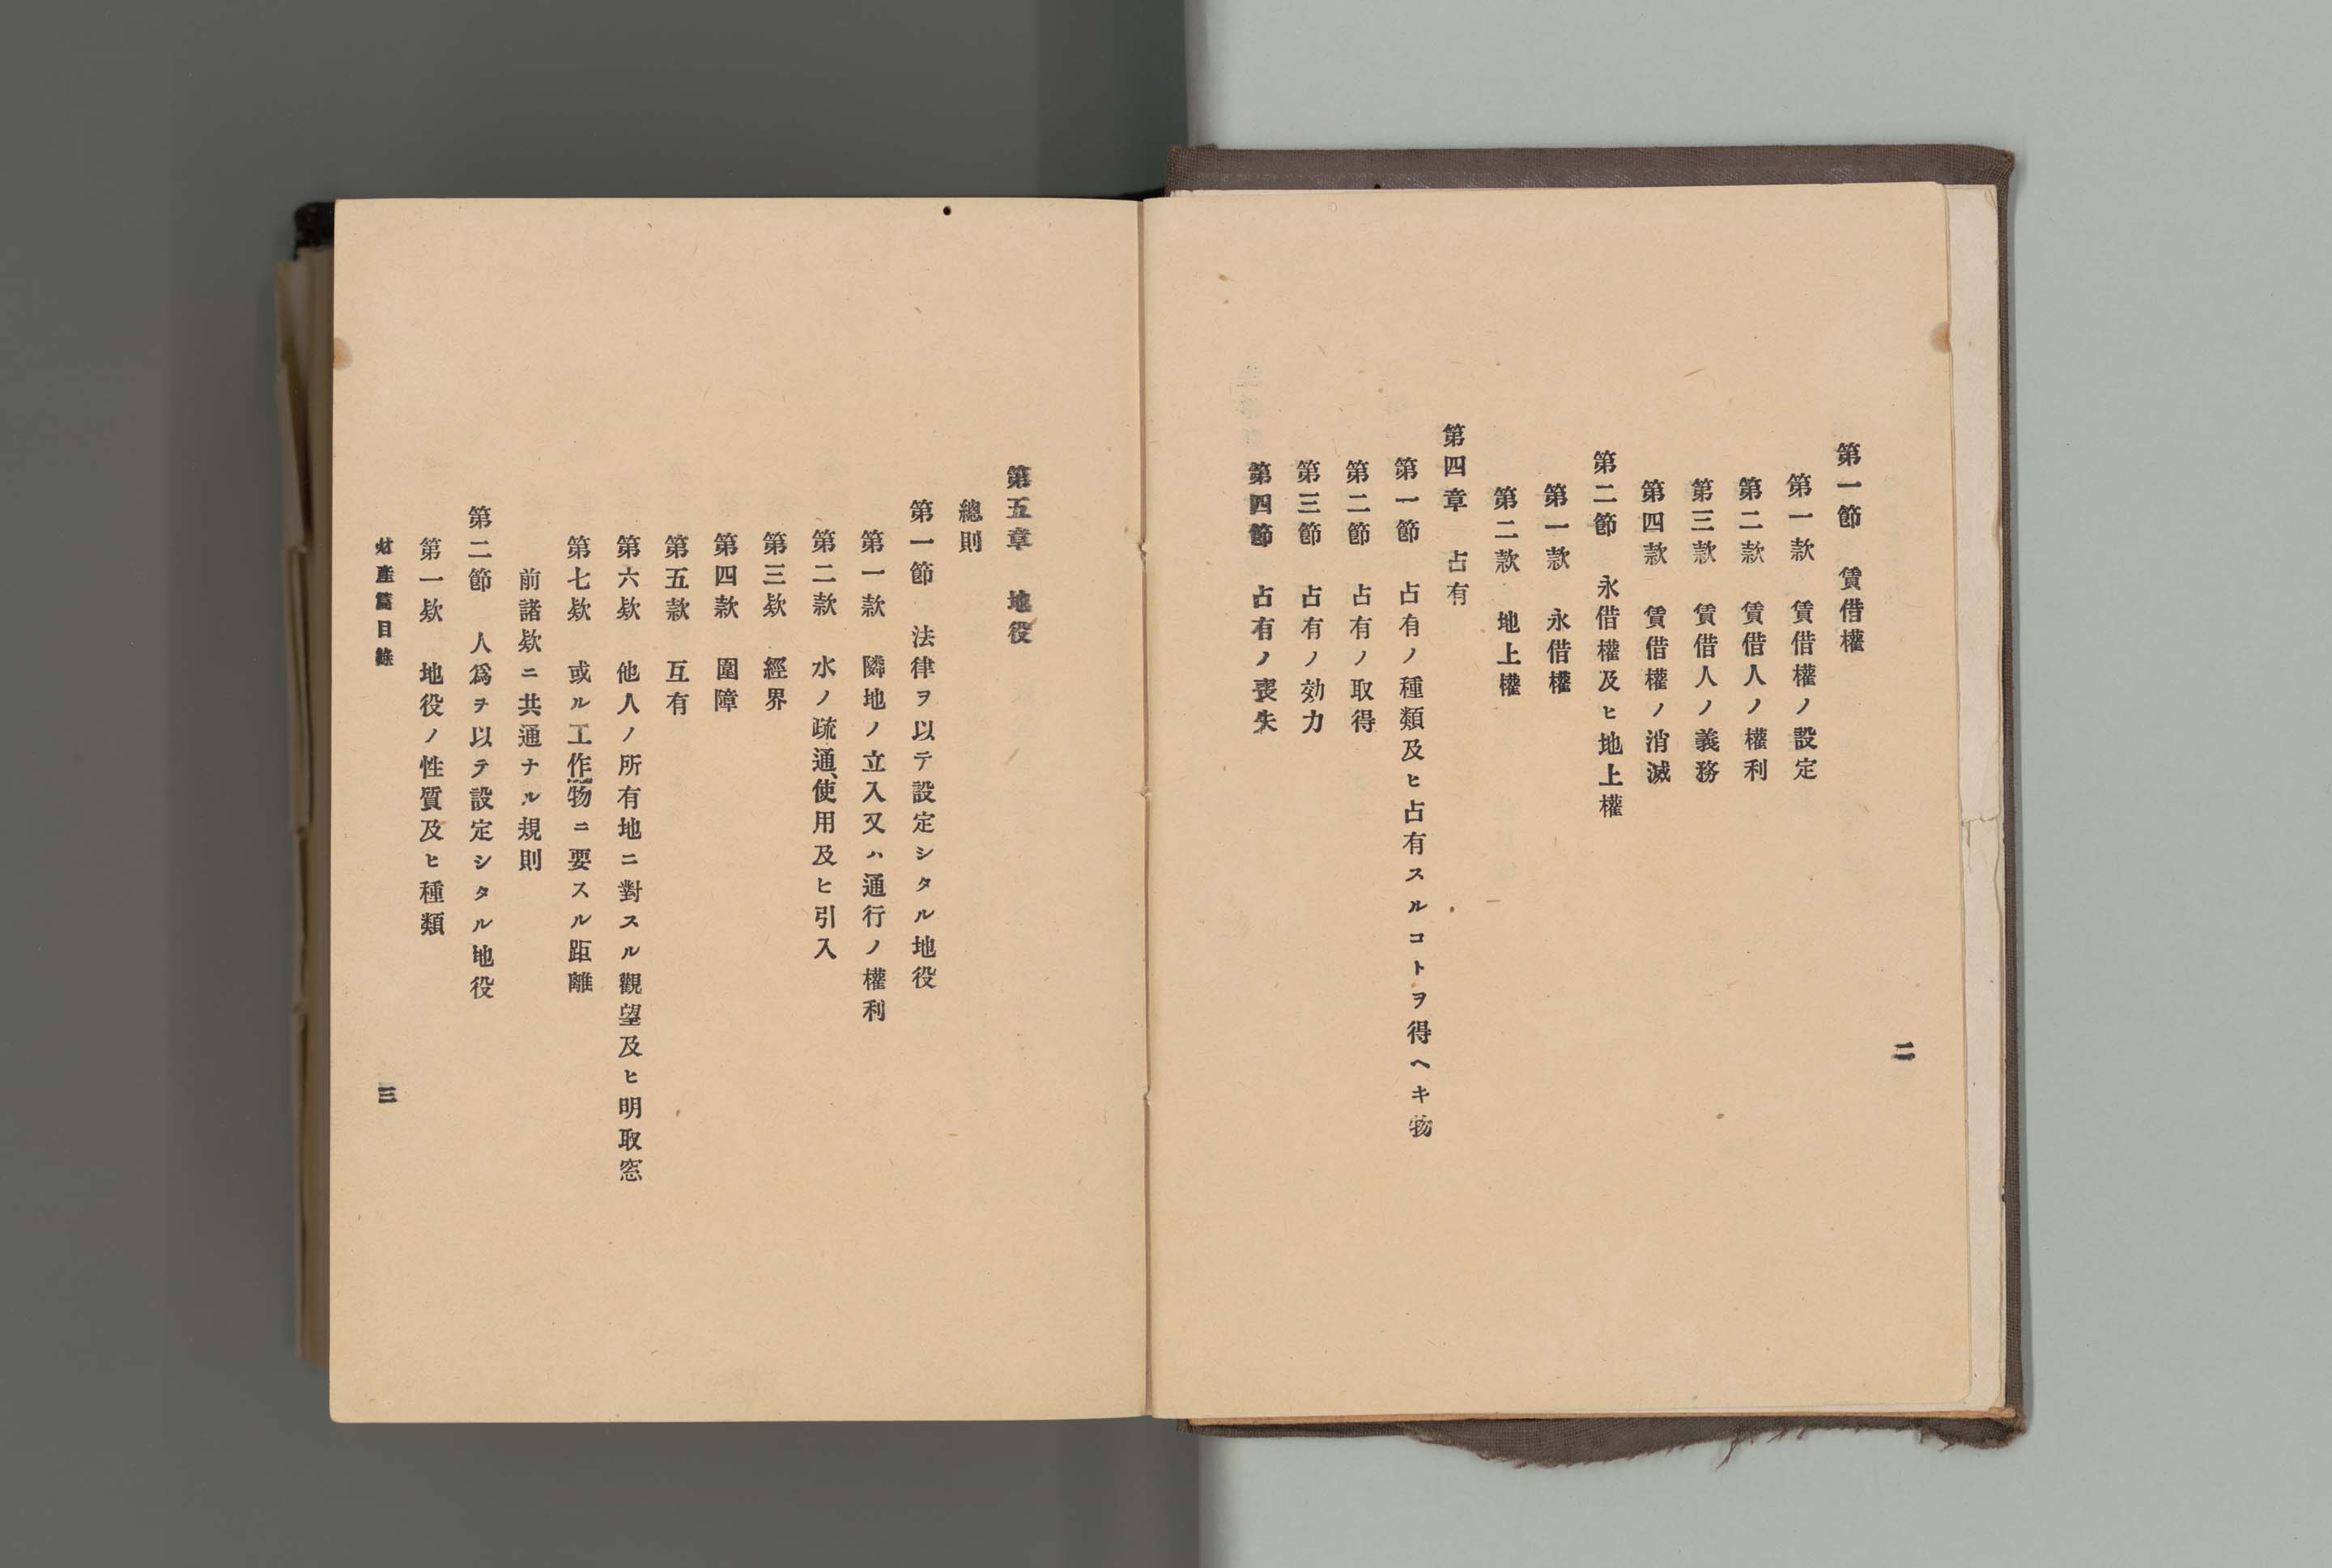 二
第一節　賃借權
第一款　賃借權ノ設定
第二款　賃借人ノ權利
第三款　賃借人ノ義務
第四款　賃借權ノ消滅
第二節　永借權及ヒ地上權
第一款　永借權
第二款　地上權
第四章　占有
第一節　占有ノ種類及ヒ占有スルコトヲ得ヘキ物
第二節　占有ノ取得
第三節　占有ノ効力
第四節　占有ノ喪失
第五章　地役
總則
第一節　法律ヲ以テ設定シタル地役
第一款　隣地ノ立入又ハ通行ノ權利
第二款　水ノ疏通、使用及ヒ引入
第三欵　經界
第四款　圍障
第五款　互有
第六欵　他人ノ所有地ニ對スル觀望及ヒ明取窓
第七欵　或ル工作物ニ要スル距離
前諸欵ニ共通ナル規則
第二節　人爲ヲ以テ設定シタル地役
第一欵　地役ノ性質及ヒ種類
財產篇目錄
三